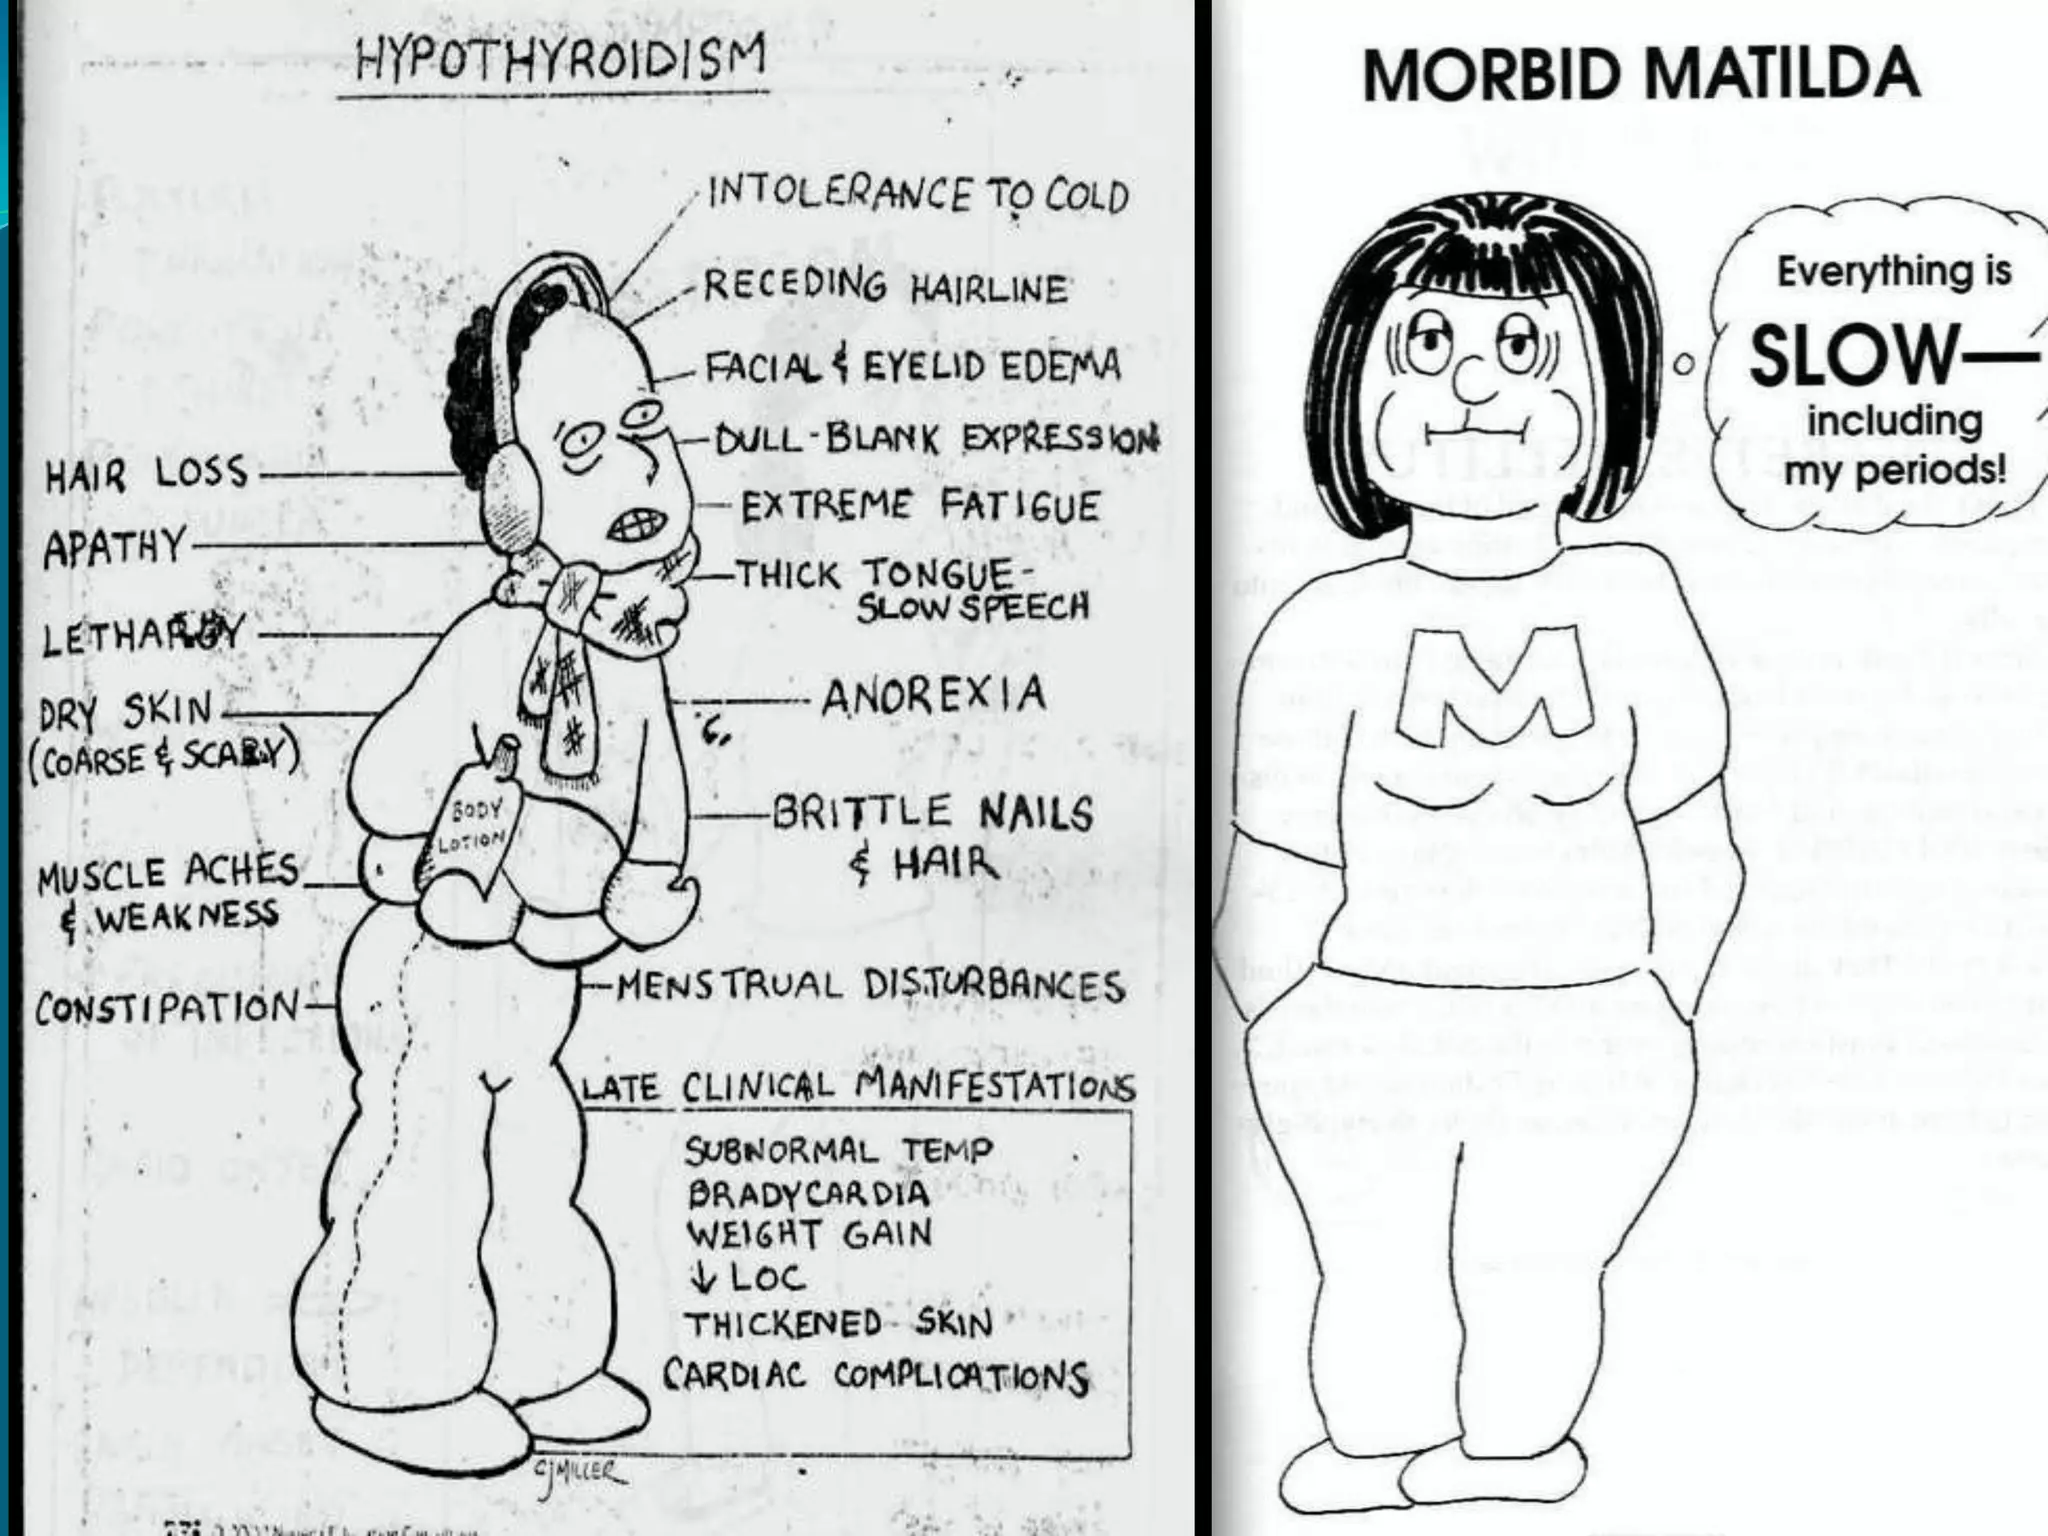 HYPOTHYROIDISM
INTOLERANCE TO COLD
RECEDING HAIRLINE
FACIAL & EYELID EDEMA
DULL-BLANK EXPRESSION
EXTREME FATIGUE
THICK TONGUE-
SLOW SPEECH
ANOREXIA
BRITTLE NAILS
& HAIR
MENSTRUAL DISTURBANCES
HAIR LOSS
APATHY
LETHARGY
DRY SKIN
(COARSE & SCALY)
MUSCLE ACHES
& WEAKNESS
CONSTIPATION
BODY
LOTION
LATE CLINICAL MANIFESTATIONS
SUBNORMAL TEMP
BRADYCARDIA
WEIGHT GAIN
↓ LOC
THICKENED SKIN
CARDIAC COMPLICATIONS
CJMILLER
MORBID MATILDA
Everything is
SLOW—
including
my periods!
M